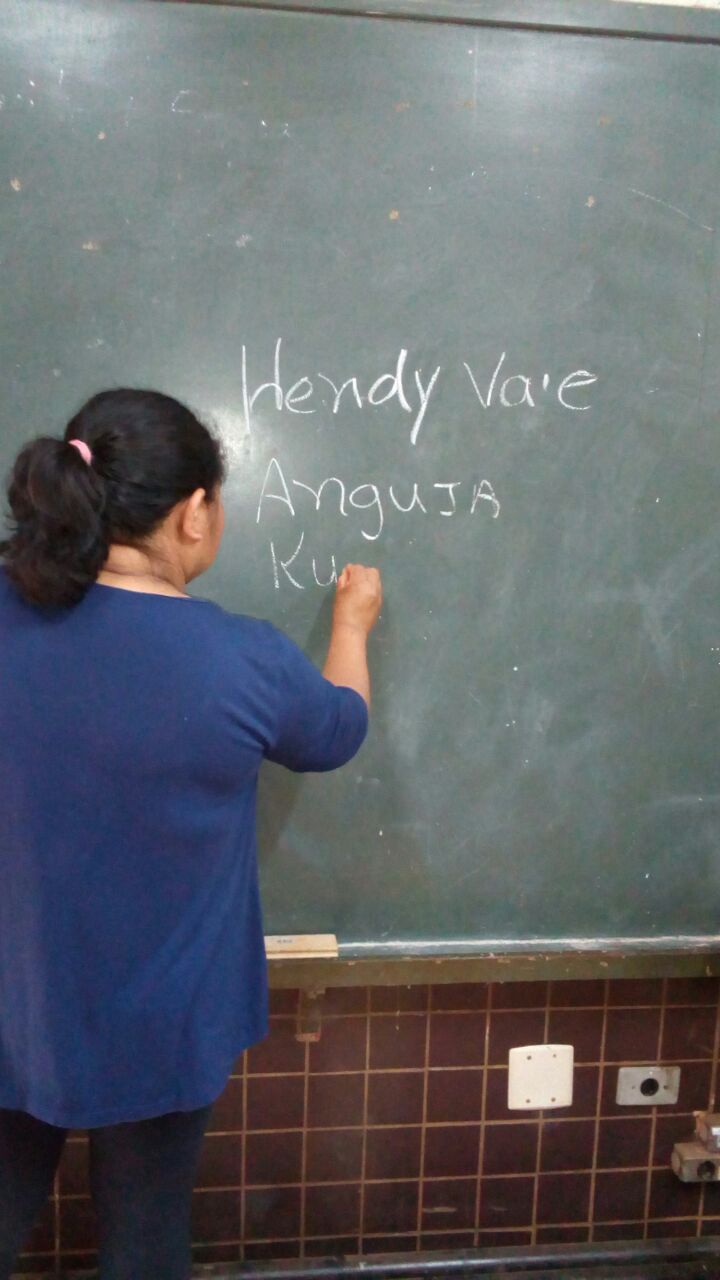 Hendy Va'e
AnguJA
Ku